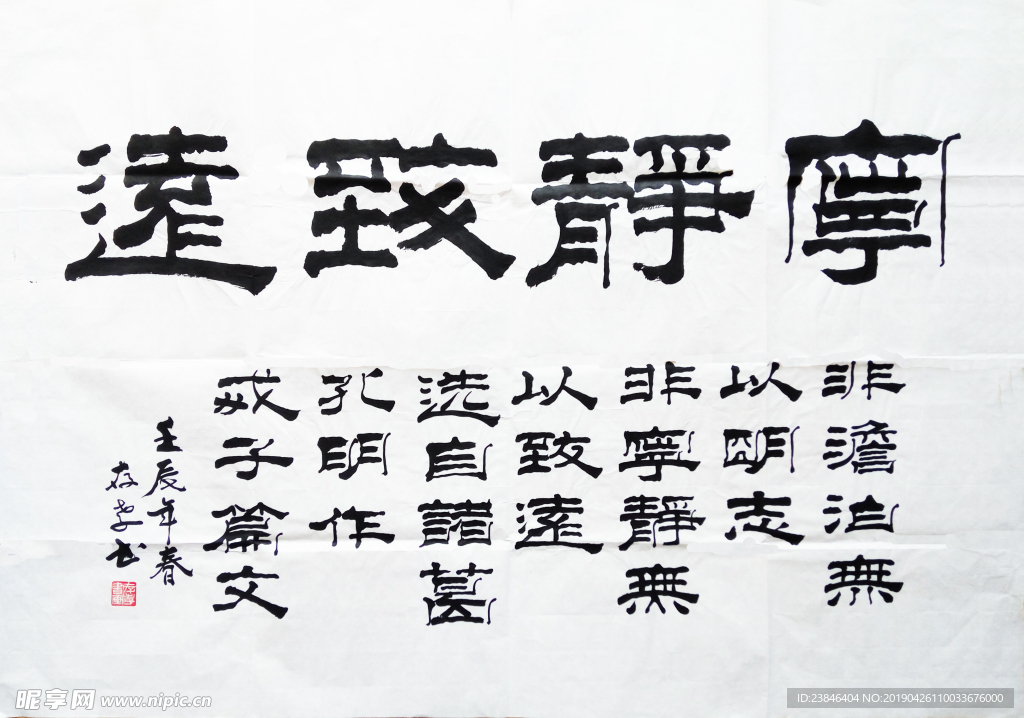 寧靜致遠
非澹泊無
以明志
非寧靜無
以致遠
选自諸葛
孔明作
戒子篇文
壬辰年春
昵享网 www.nipic.cn
ID:23846404 NO:20190426110033676000